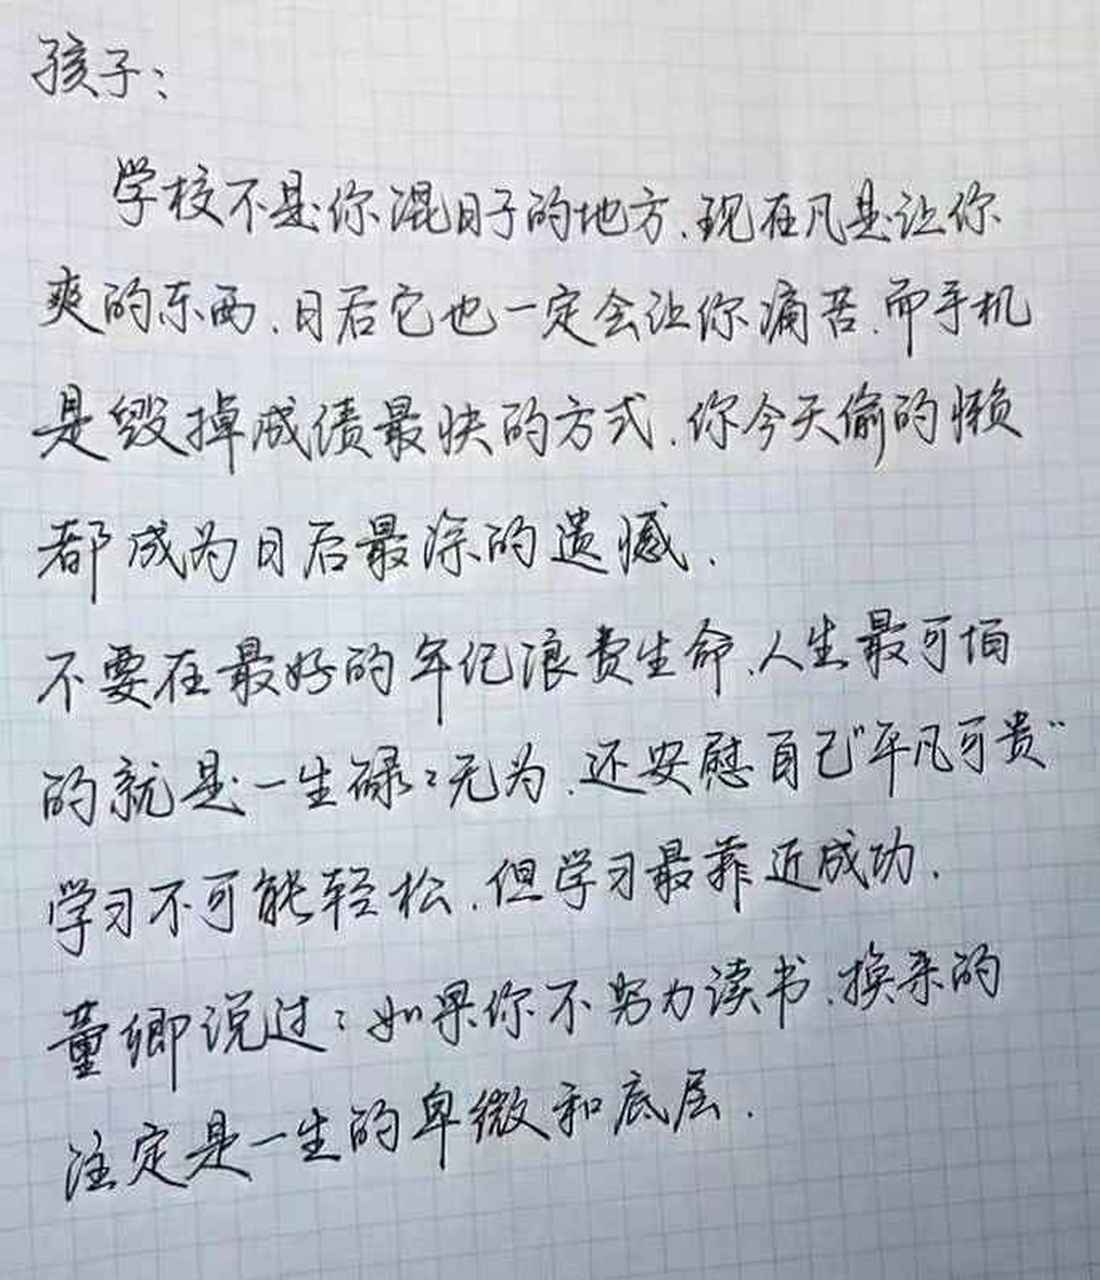 孩子:
学校不是你混日子的地方.现在凡是让你
爽的东西.日后它也一定会让你痛苦.而手机
是毁掉成绩最快的方式.你今天偷的懒
都成为日后最深的遗憾.
不要在最好的年纪浪费生命.人生最可怕
的就是一生碌々无为.还安慰自己"平凡可贵"
学习不可能轻松.但学习最靠近成功.
董卿说过:如果你不努力读书.换来的
注定是一生的卑微和底层.